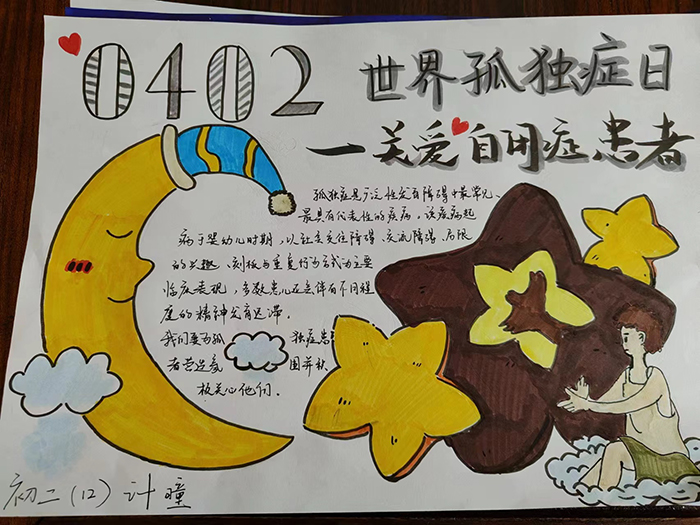 0402
世界孤独症日
一关爱自闭症患者
孤独症是广泛性发育障碍中最常见、
最具有代表性的疾病，该疾病起
病于婴幼儿时期，以社会交往障碍、交流障碍、局限
的兴趣、刻板与重复行为方式为主要
临床表现，多数患儿还会伴有不同程
度的精神发育迟滞。
我们要为孤独症患
者营造爱围并积
极关心他们．
初二（12）计瞳